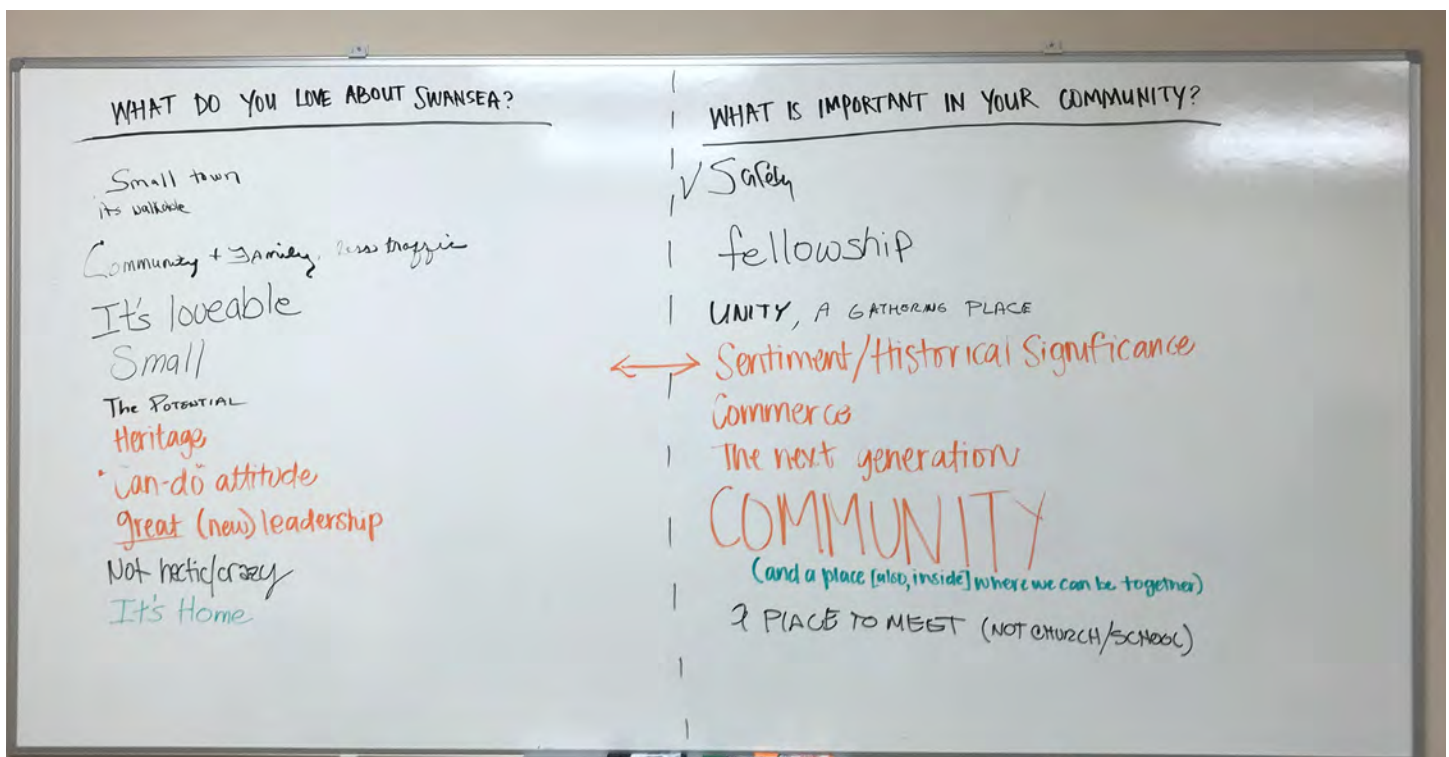 WHAT DO YOU LOVE ABOUT SWANSEA?
Small town
its walkable
Community + Family, less traffic
It's loveable
Small
The POTENTIAL
Heritage
"can-do" attitude
great (new) leadership
Not hectic/crazy
It's Home
WHAT IS IMPORTANT IN YOUR COMMUNITY?
√ Safety
fellowship
UNITY, A GATHERING PLACE
Sentiment/Historical Significance
Commerce
The next generation
COMMUNITY
(and a place [also, inside] where we can be together)
A PLACE TO MEET (NOT CHURCH/SCHOOL)